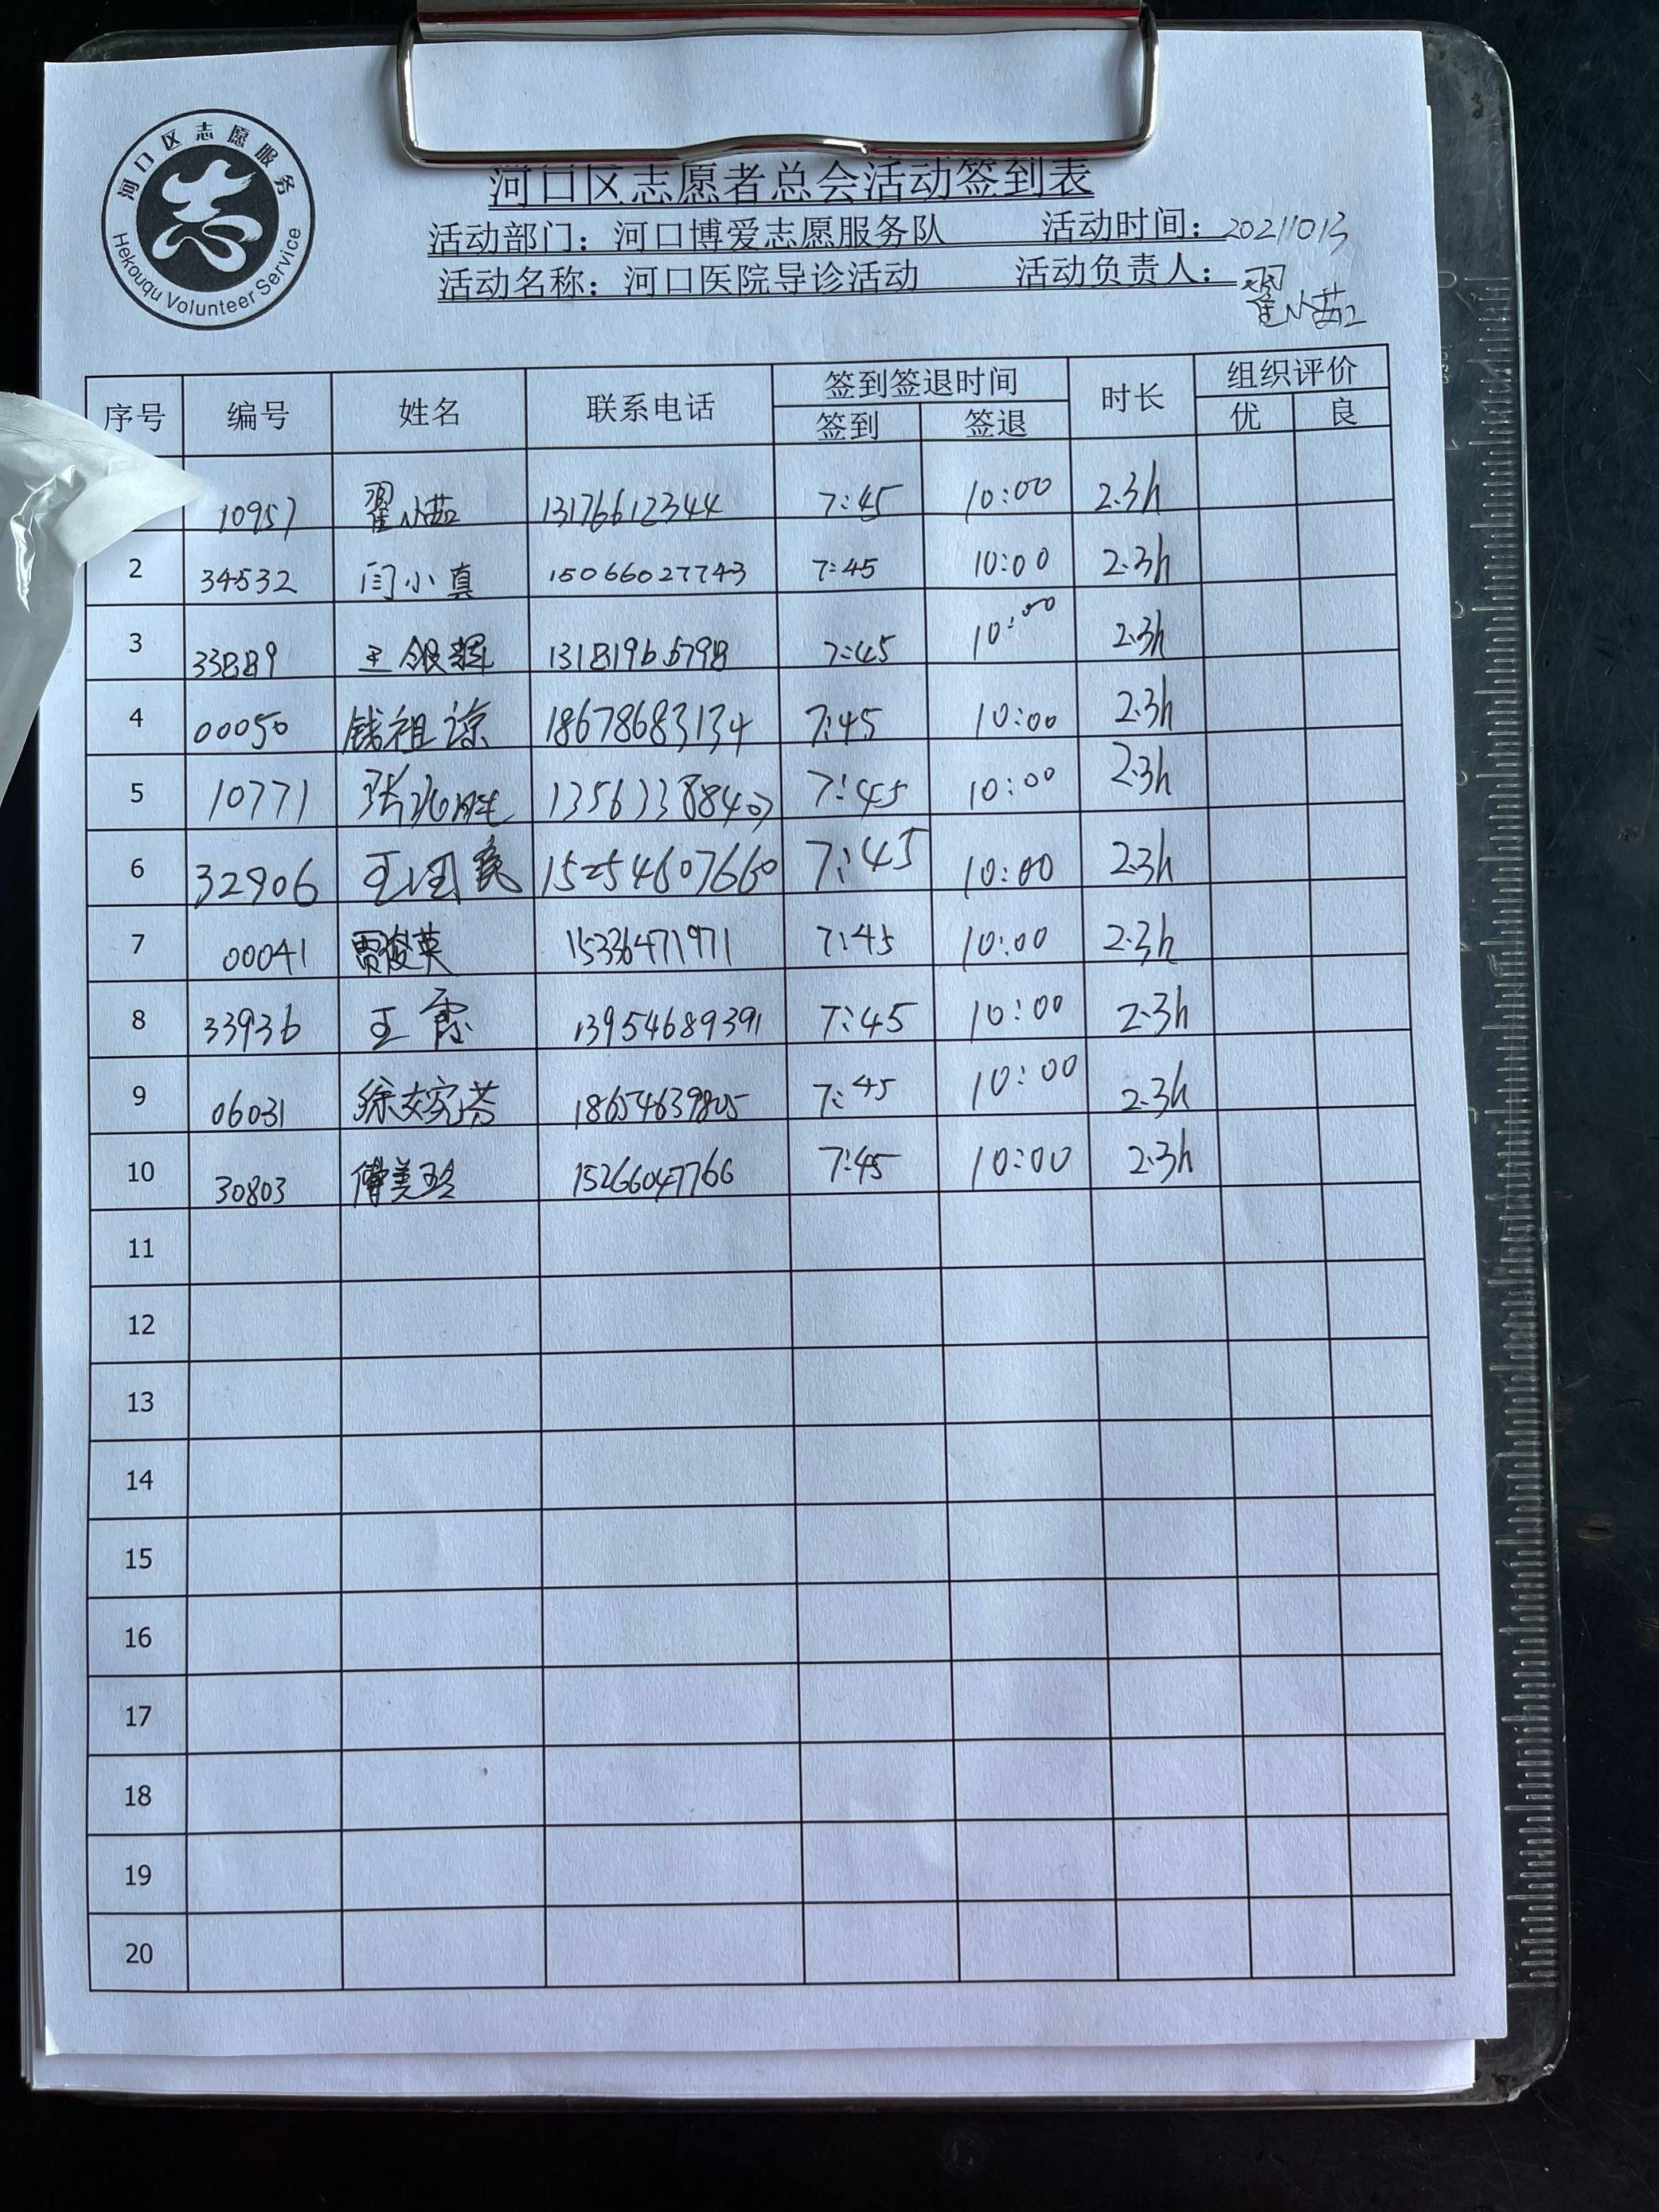 河口区志愿服务
Hekouqu Volunteer Service
河口区志愿者总会活动签到表
活动部门：河口博爱志愿服务队 活动时间：20211013
活动名称：河口医院导诊活动 活动负责人：翟小茹
序号 编号 姓名 联系电话 签到签退时间 时长 组织评价
签到 签退 优 良
10957 翟小茹 13176612344 7:45 10:00 2.3h
2 34532 闫小真 15066027743 7:45 10:00 2.3h
3 33889 王银辉 7:45 10:00 2.3h
4 00050 钱祖谅 18678683134 7:45 10:00 2.3h
5 10771 张兆胜 7:45 10:00 2.3h
6 32906 王国良 15254607660 7:45 10:00 2.3h
7 00041 贾俊英 15336471971 7:45 10:00 2.3h
8 33936 王霞 13954689391 7:45 10:00 2.3h
9 06031 18654639805 7:45 10:00 2.3h
10 30803 傅美玲 15266047766 7:45 10:00 2.3h
11
12
13
14
15
16
17
18
19
20